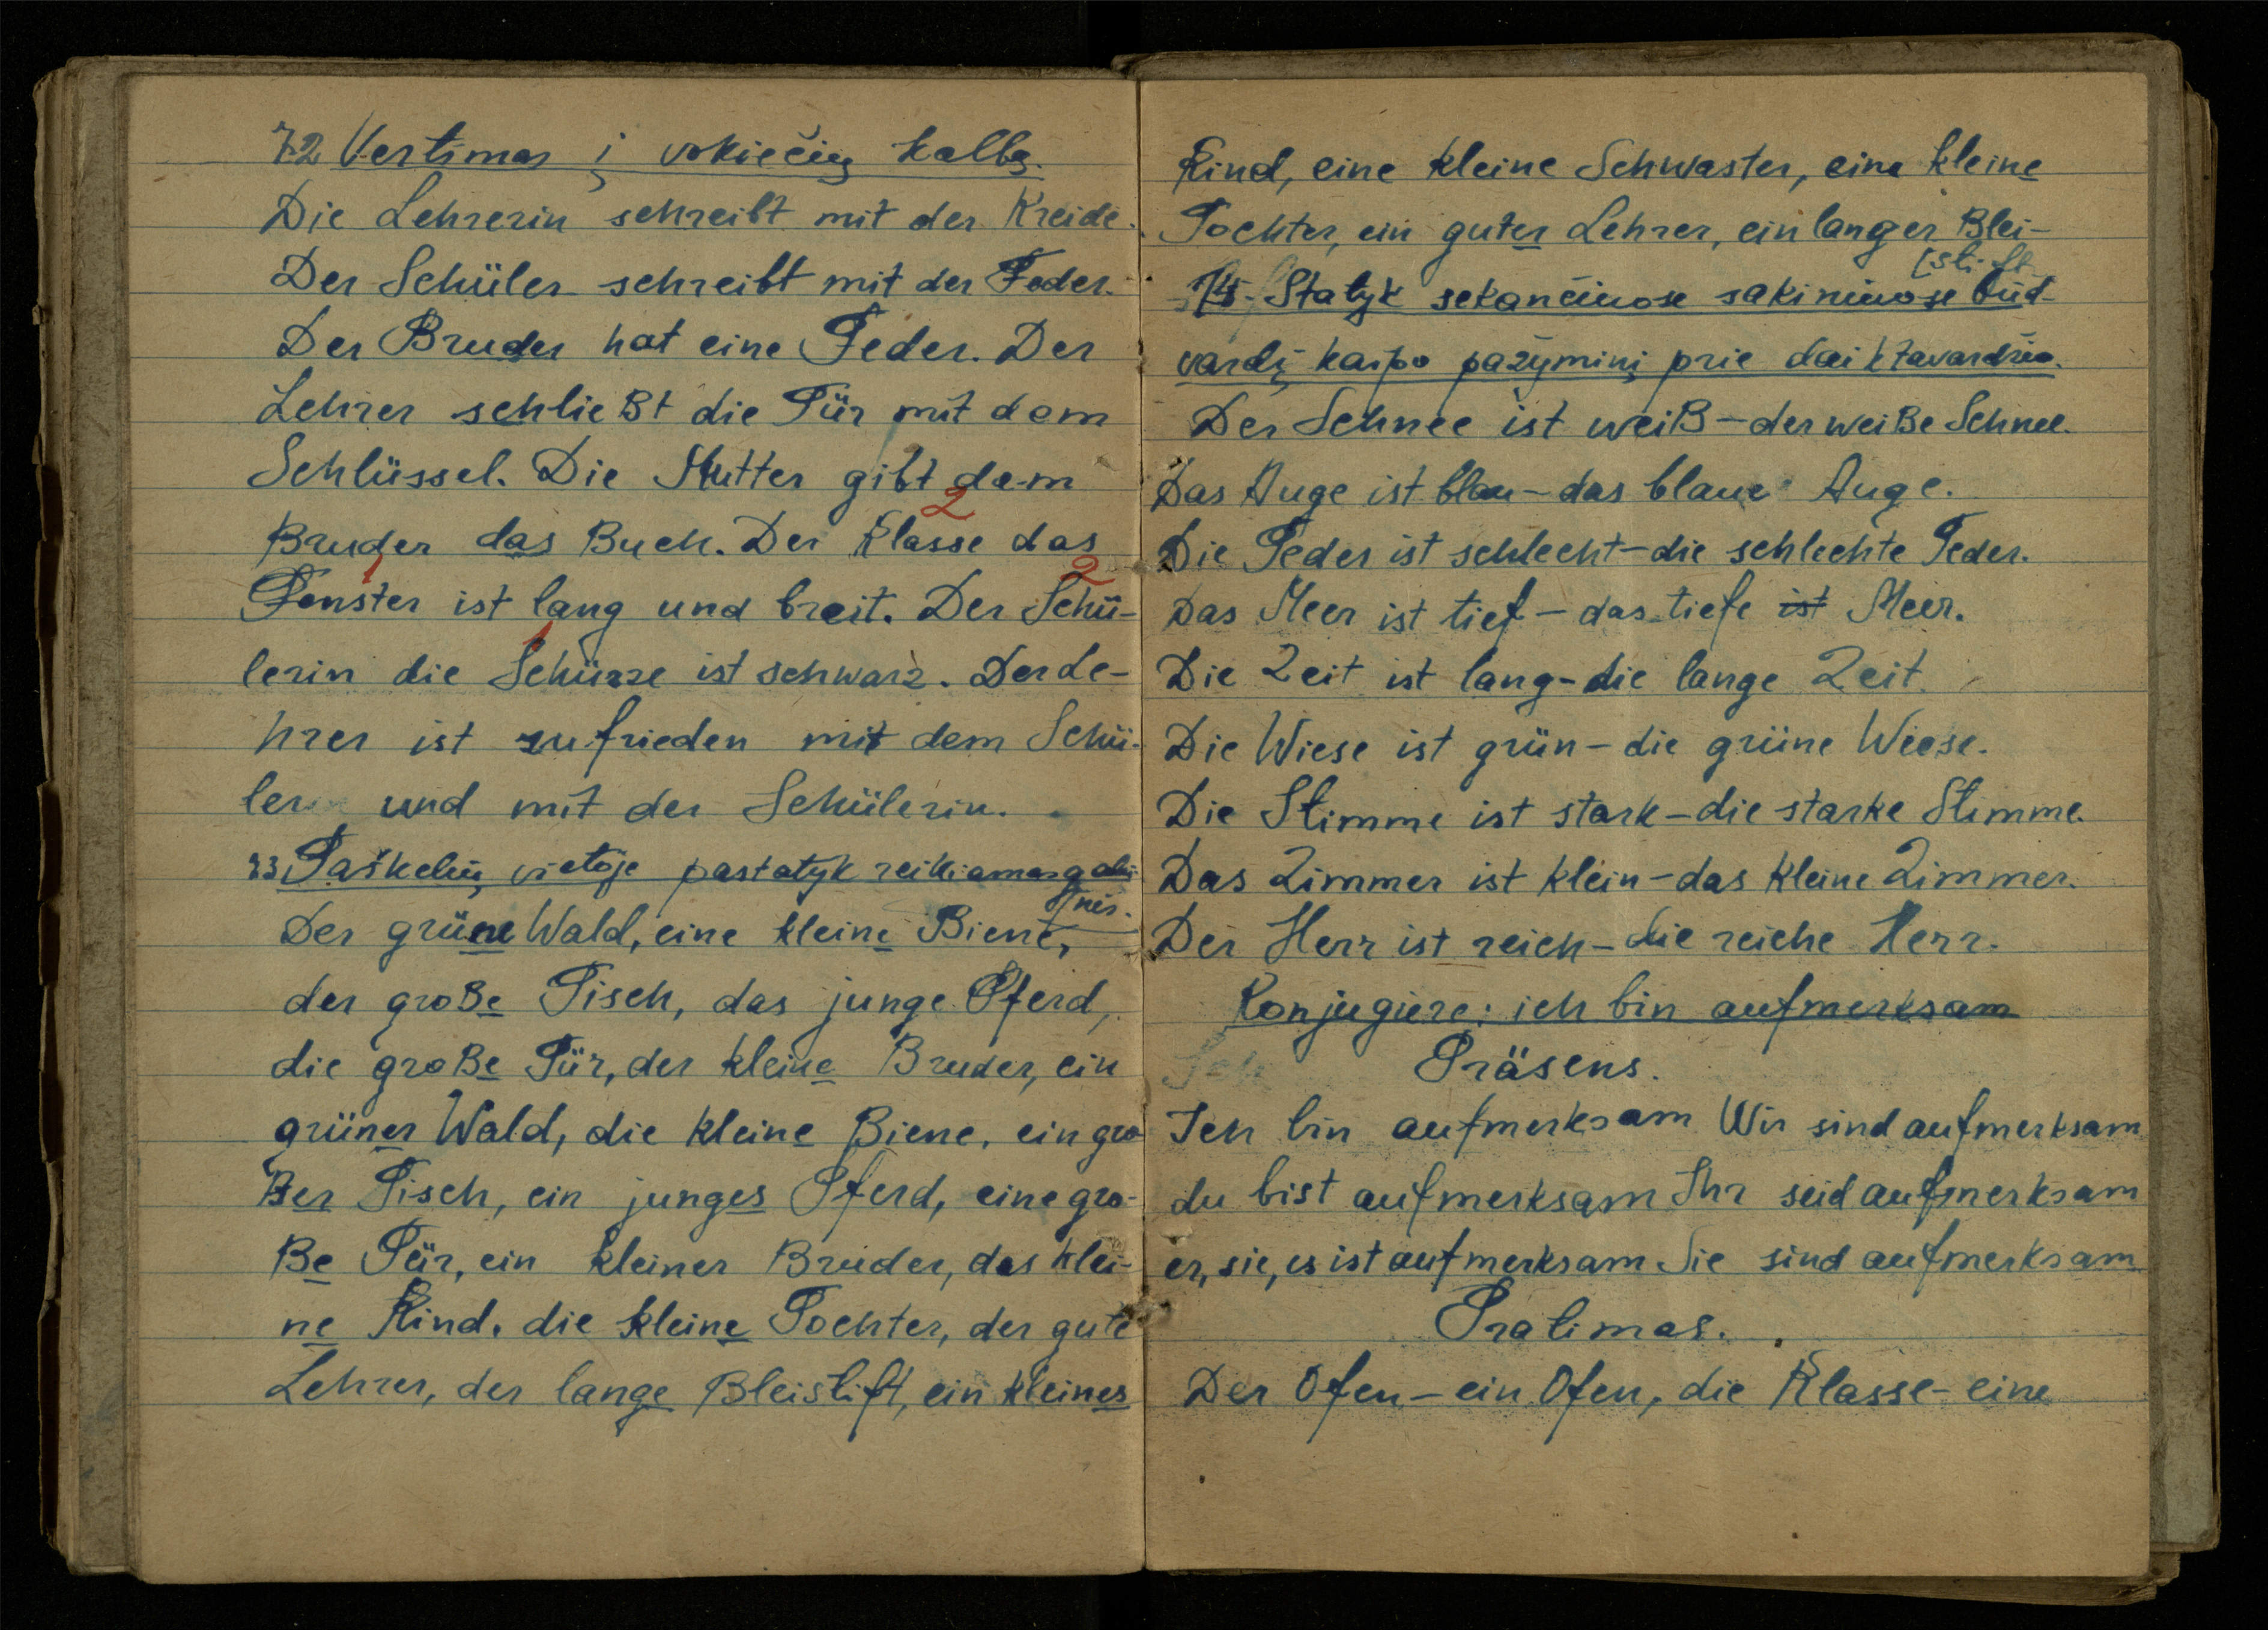 72 Vertimas į vokiečių kalbą.
Die Lehrerin schreibt mit der Kreide.
Der Schüler schreibt mit der Feder.
Der Bruder hat eine Feder. Der
Lehrer schließt die Tür mit dem
Schlüssel. Die Mutter gibt dem
2
Bruder das Buch. Der Klasse das
1 2
Fenster ist lang und breit. Der Schü-
1
lerin die Schürze ist schwarz. Der Le-
hrer ist zufrieden mit dem Schü-
ler und mit der Schülerin.
73 Taškelių vietoje pastatyk reikiamas galū-
nes.
Der grüne Wald, eine kleine Biene,
der große Tisch, das junge Pferd,
die große Tür, der kleine Bruder, ein
grüner Wald, die kleine Biene, ein gro-
ßer Tisch, ein junges Pferd, eine gro-
ße Tür, ein kleiner Bruder, das klei-
ne Kind, die kleine Tochter, der gute
Lehrer, der lange Bleistift, ein kleines
Kind, eine kleine Schwaster, eine kleine
Tochter, ein guter Lehrer, ein langer Blei-
[stift
74. Statyk sekančiuose sakiniuose būd-
vardį kaipo pažyminį prie daiktavardžio.
Der Schnee ist weiß – der weiße Schnee.
Das Auge ist blau – das blaue Auge.
Die Feder ist schlecht – die schlechte Feder.
Das Meer ist tief – das tiefe ist Meer.
Die Zeit ist lang – die lange Zeit.
Die Wiese ist grün – die grüne Wiese.
Die Stimme ist stark – die starke Stimme.
Das Zimmer ist klein – das kleine Zimmer.
Der Herr ist reich – die reiche Herr.
Konjugiere: ich bin aufmerksam
Präsens.
Ich bin aufmerksam Wir sind aufmerksam
du bist aufmerksam Ihr seid aufmerksam
er, sie, es ist aufmerksam Sie sind aufmerksam
Pratimas.
Der Ofen – ein Ofen, die Klasse – eine